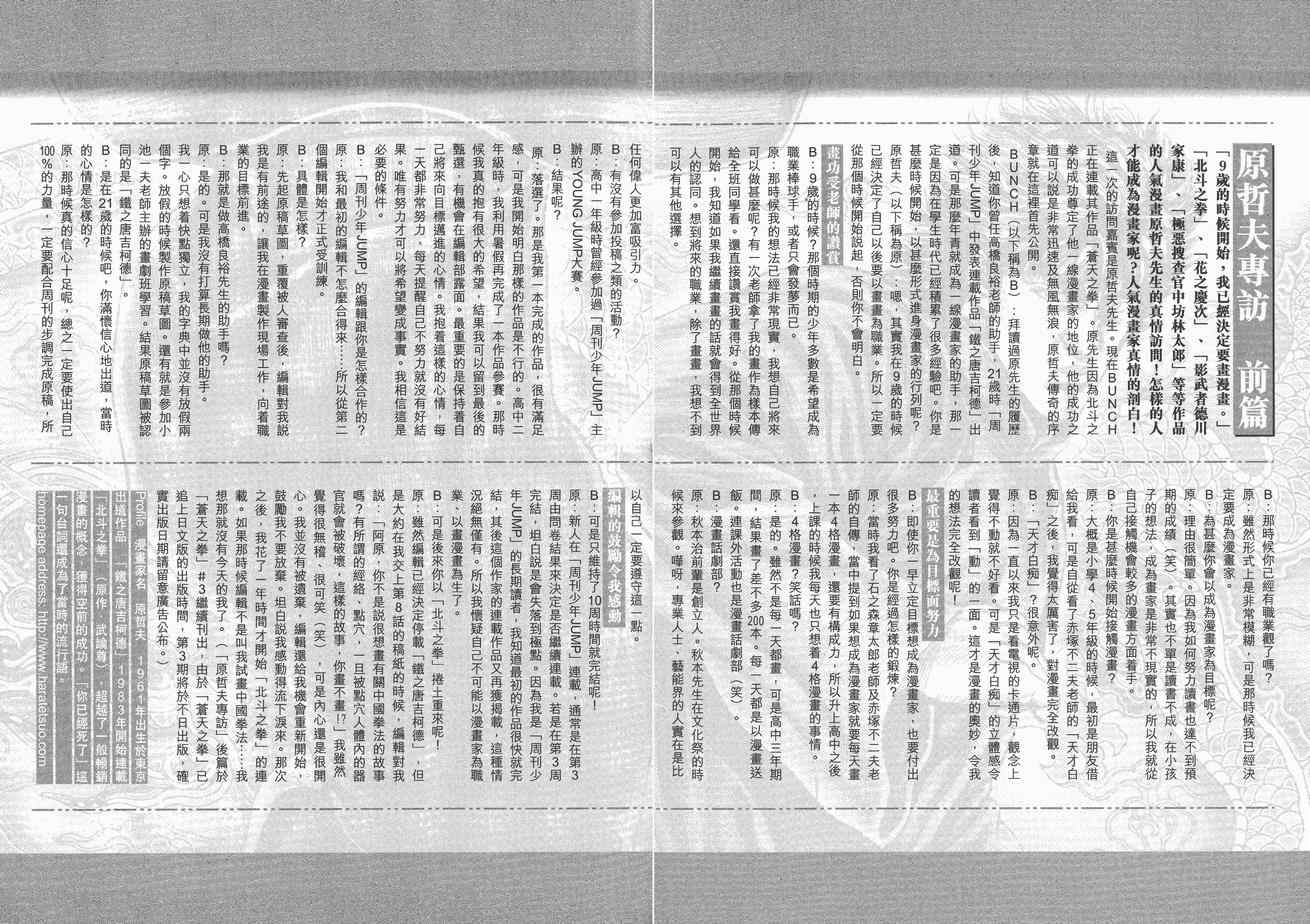 原哲夫專訪　前篇
「9歲的時候開始，我已經決定要畫漫畫。」
「北斗之拳」、「花之慶次」、「影武者德川
家康」、「極惡搜查官中坊林太郎」等等作品
的人氣漫畫原哲夫先生的真情訪問！怎樣的人
才能成為漫畫家呢？人氣漫畫家真情的剖白！
這一次的訪問嘉賓是原哲夫先生。現在BUNCH
正在連載其作品「蒼天之拳」。原先生因為北斗之
拳的成功尊定了他一線漫畫家的地位，他的成功之
道可以說是非常迅速及無風無浪，原哲夫傳奇的序
章就在這裡首先公開。
BUNCH（以下稱為B）：拜讀過原先生的履歷
後，知道你曾任高橋良裕老師的助手，21歲時「周
刊少年JUMP」中發表連載作品「鐵之唐吉柯德」出
道。可是那麼年青就成為一線漫畫家的助手，那一
定是因為在學生時代已經積累了很多經驗吧。你是
甚麼時候開始，以甚麼形式進身漫畫家的行列呢？
原哲夫（以下稱為原）：嗯，其實我在9歲的時候
已經決定了自己以後要以畫畫為職業。所以一定要
從那個時候開始說起，否則你不會明白。
畫功受老師的讚賞
B：9歲的時候？那個時期的少年多數是希望成為
職業棒球手，或者只會發夢而已。
原：那時候我的想法已經非常現實，我想自己將來
可以做甚麼呢？有一次老師拿了我的畫作為樣本傳
給全班同學看。還直接讚賞我畫得好。從那個時候
開始，我知道如果我繼續畫畫的話就會得到全世界
人的認同。想到將來的職業，除了畫畫，我想不到
可以有其他選擇。
B：那時候你已經有職業觀了嗎？
原：雖然形式上是非常模糊，可是那時候我已經決
定要成為漫畫家。
B：為甚麼你會以成為漫畫家為目標呢？
原：理由很簡單。因為我如何努力讀書也達不到預
期的成績（笑）。其實也不單是讀書方面，在小孩
子的想法，成為畫家是非常不現實的，所以我就從
自己接觸機會較多的漫畫方面着手。
B：你是甚麼時候開始接觸漫畫？
原：大概是小學4、5年級的時候，最初是朋友借
給我看，可是自從看了赤塚不二夫老師的「天才白
痴」之後，我覺得太厲害了，對漫畫完全改觀。
B：「天才白痴」？很意外呢。
原：因為一直以來我只是看電視的卡通片，觀念上
覺得不動就不好看。可是「天才白痴」的立體感令
讀者看到「動」的一面。這才是漫畫的奧妙，令我
的想法完全改觀呢！
最重要是為目標而努力
B：即使你一早立定目標想成為漫畫家，也要付出
很多努力吧。你是經過怎樣的鍛煉？
原：當時我看了石之森章太郎老師及赤塚不二夫老
師的自傳，當中提到如果想成為漫畫家就要每天畫
一本4格漫畫，還要有構成力，所以升上高中之後
，上課的時候我每天也只想着4格漫畫的事情。
B：4格漫畫？笑話嗎？
原：是的。雖然不是每一天都畫，可是高中三年期
間，結果畫了差不多200本。每一天都是以漫畫送
飯。連課外活動也是漫畫話劇部（笑）。
B：漫畫話劇部？
原：秋本治前輩是創立人。秋本先生在文化祭的時
候來參觀。嘩呀，專業人士、藝能界的人實在是比
任何偉人更加富吸引力。
B：有沒有參加投稿之類的活動？
原：高中一年級時曾經參加過「周刊少年JUMP」主
辦的YOUNG JUMP大賽。
B：結果呢？
原：落選了。那是我第一本完成的作品，很有滿足
感，可是我開始明白那樣的作品是不行的。高中二
年級時，我利用暑假再完成了一本作品參賽。那時
候我真的抱有很大的希望，結果我可以留到最後的
甄選，有機會在編輯部露面。最重要的是保持着自
己將來向目標邁進的心情。我抱着這樣的心情，每
一天都非常努力，每天提醒自己不努力就沒有好結
果。唯有努力才可以將希望變成事實。我相信這是
必要的條件。
B：「周刊少年JUMP」的編輯跟你是怎樣合作的？
原：我和最初的編輯不怎麼合得來……所以從第二
個編輯開始才正式受訓練。
B：具體是怎樣？
原：先起原稿草圖，重覆被人審查後，編輯對我說
我是有前途的，讓我在漫畫製作現場工作，向着職
業的目標前進。
B：那就是做高橋良裕先生的助手嗎？
原：是的。可是我沒有打算長期做他的助手。
我一心只想着快點獨立，我的字典中並沒有放假兩
個字。放假的時候製作原稿草圖。還有就是參加小
池一夫老師主辦的畫劇班學習。結果原稿草圖被認
同的是「鐵之唐吉柯德」。
B：是在21歲的時候吧，你滿懷信心地出道，當時
的心情是怎樣的？
原：那時候真的信心十足呢，總之一定要使出自己
100%的力量，一定要配合周刊的步調完成原稿，所
以自己一定要遵守這一點。
編輯的鼓勵令我感動
B：可是只維持了10周時間就完結呢！
原：新人在「周刊少年JUMP」連載，通常是在第3
周由問卷結果來決定是否繼續連載。若是在第3周
完結，坦白說是會失落到極點。因為我是「周刊少
年JUMP」的長期讀者，我知道最初的作品很快就完
結，其後這個作家的連載作品又再獲揭載，這種情
況絕無僅有。所以我懷疑自己不可能以漫畫家為職
業、以畫漫畫為生了。
B：可是後來你以「北斗之拳」捲土重來呢！
原：雖然編輯已經決定停載「鐵之唐吉柯德」，但
是大約在我交上第8話的稿紙的時候，編輯對我
說：「阿原，你不是說很想畫有關中國拳法的故事
嗎？有所謂的經絡、點穴，一旦被點穴人體內的器
官就會被破壞，這樣的故事，你畫不畫!?」我雖然
覺得很無稽、很可笑（笑），可是內心還是很開
心。我並沒有被遺棄，編輯還給我機會重新開始，
鼓勵我不要放棄。坦白說我感動得流下淚來。那次
之後，我花了一年時間才開始「北斗之拳」的連
載。如果那時候編輯不是叫我試畫中國拳法……我
想那就沒有今天的我了。（「原哲夫專訪」後篇於
「蒼天之拳」#3繼續刊出，由於「蒼天之拳」已
追上日文版的出版時間，第3期將於不日出版，確
實出版日期請留意廣告公布。）
Profile　漫畫家名　原哲夫　1961年出生於東京
出道作品　「鐵之唐吉柯德」　1983年開始連載
「北斗之拳」（原作　武論尊），超越了一般暢銷
漫畫的概念，獲得空前的成功。「你已經死了」這
一句台詞還成為了當時的流行語。
homepage address: http://www.haratetsuo.com